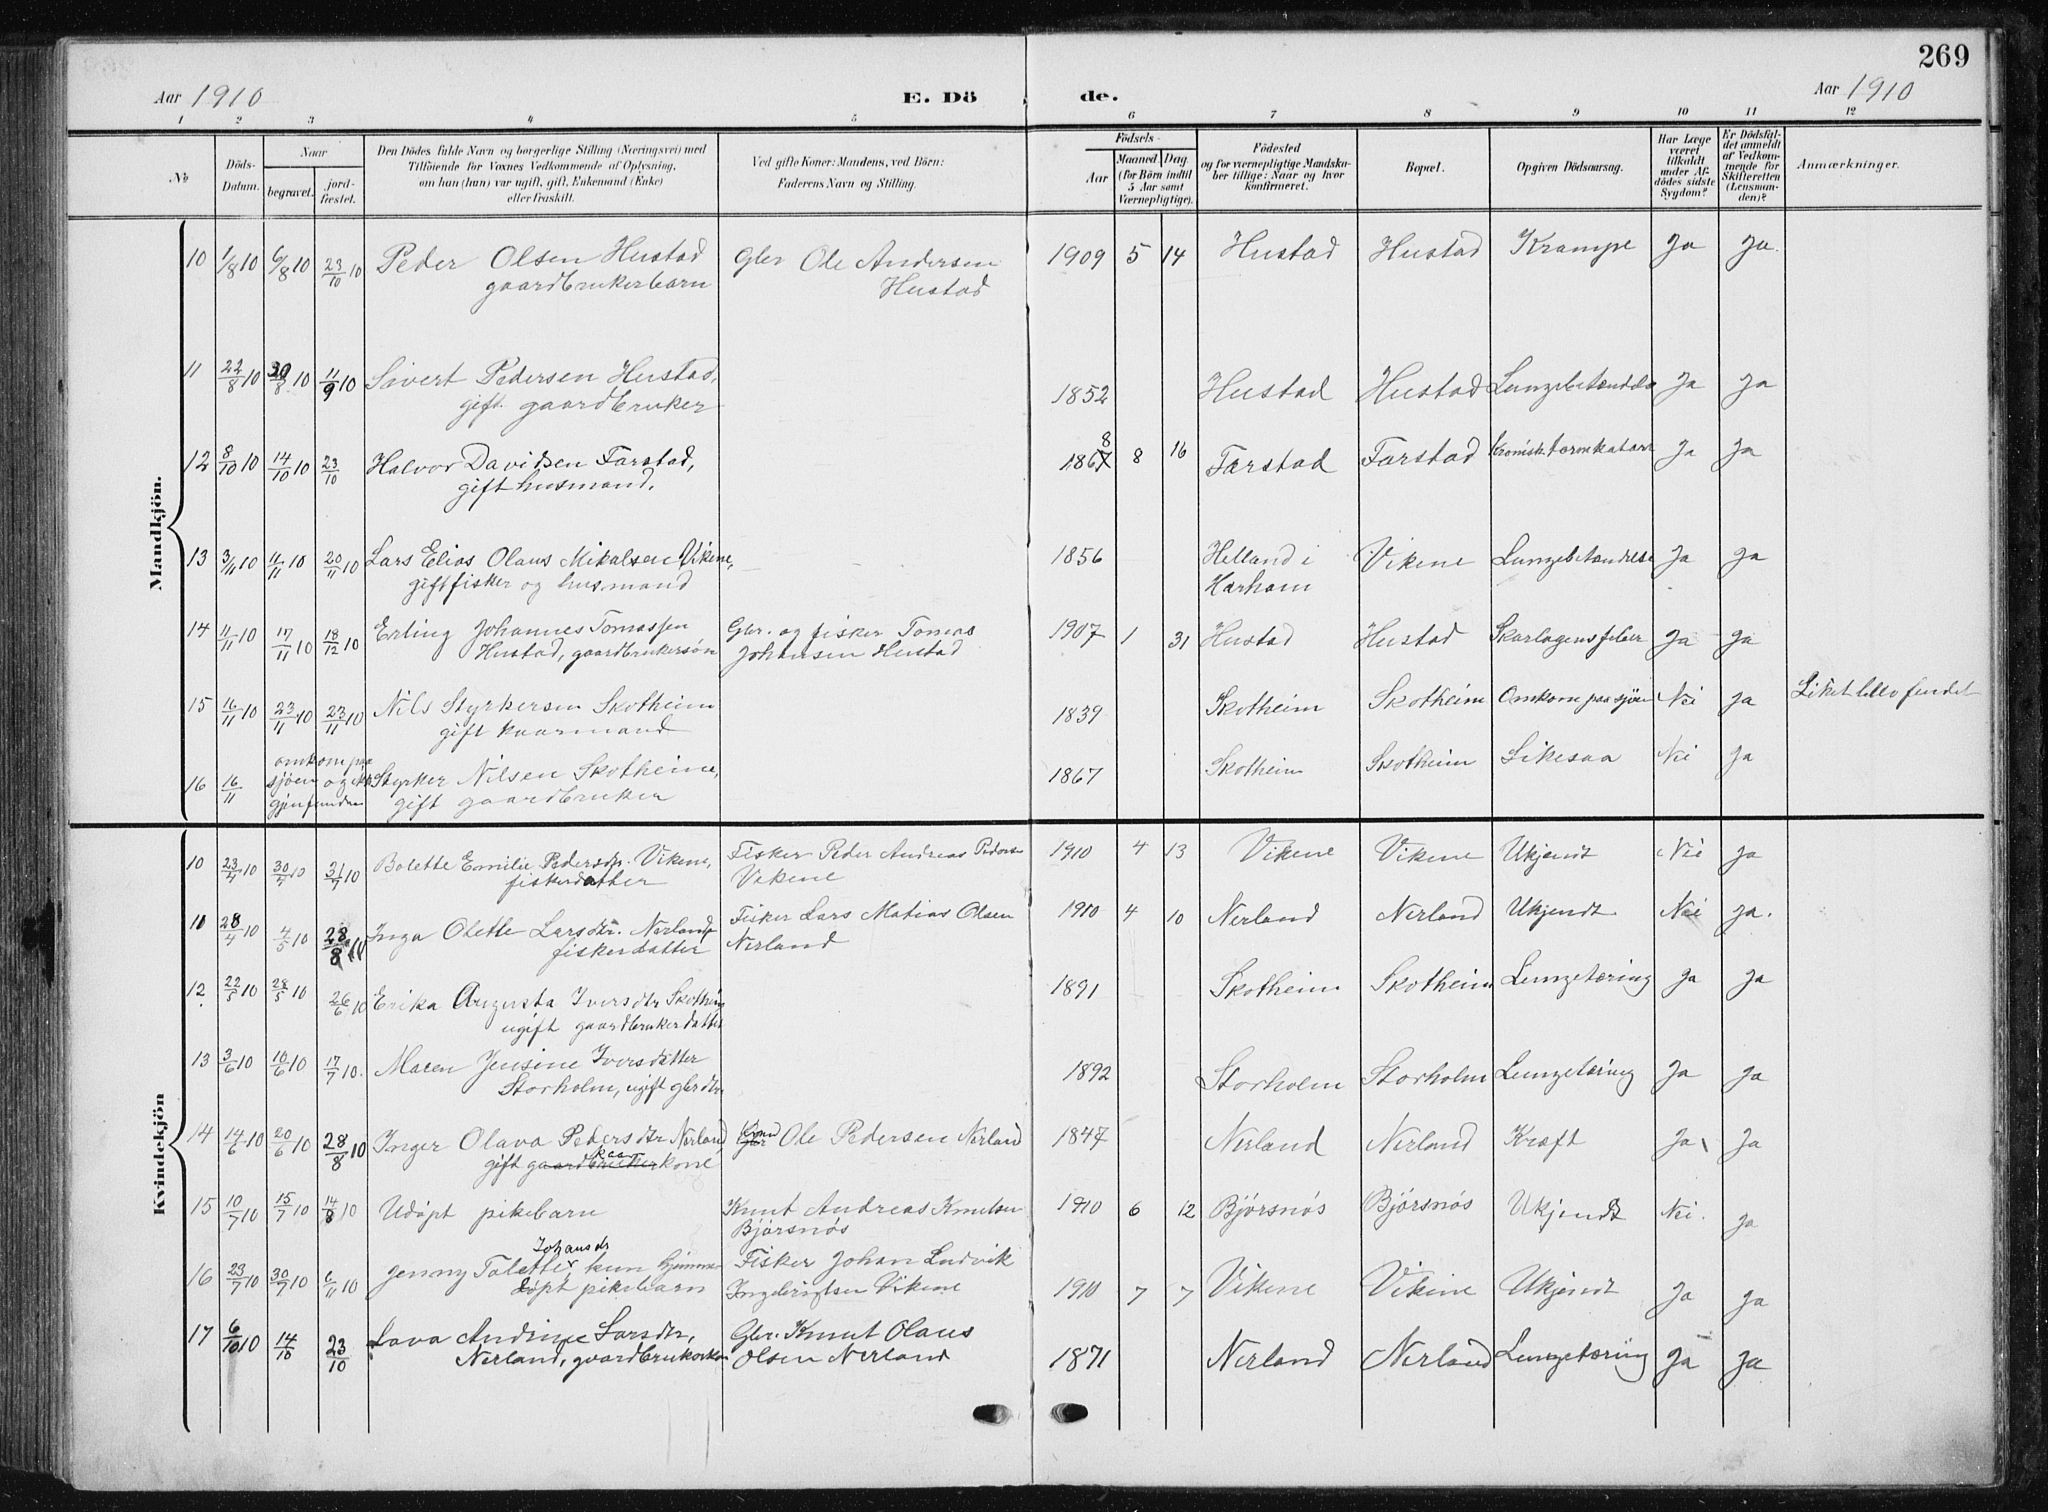 269
Aar 1910
E. Dö de.
Aar 1910
1 2 3 4 5 6 7 8 9 10 11 12
No
Döds-Datum.
Naar
begravet.
jord-fæstet.
Den Dödes fulde Navn og borgerlige Stilling (Næringsvei) med
Tilföiende for Voxnes Vedkommende af Oplysning,
om han (hun) var ugift, gift, Enkemand (Enke)
eller fraskilt.
Ved gifte Koner: Mandens, ved Börn:
Faderens Navn og Stilling.
Födsels-
Aar
Maaned. Dag.
(for Börn indtil
5 Aar samt
Værnepligtige).
Födested
og for værnepligtige Mandska-
ber tillige: Naar og hvor
Konfirmeret.
Bopæl.
Opgiven Dödsaarsag.
Har Læge
været
tilkaldt
under Af-
dödes sidste
Sygdom?
Er Dödsfal-
det anmeldt
af Vedkom-
mende for
Skifteretten
(Lensman-
den)?
Anmærkninger.
Mandkjön.
10 1/8 10 6/8 10 23/10 10 Peder Olsen Hustad Gbr Ole Andersen 1909 5 14 Hustad Hustad Krampe Ja Ja.
gaardbrukerbarn Hustad
11 22/8 10 30/8 10 11/9 10 Sivert Pedersen Hustad, 1852 Hustad Hustad Ja Ja
gift gaardbruker
12 8/10 10 14/10 10 23/10 Halvor Davidsen Farstad, 1867 8 8 16 Farstad Farstad Kronisk tarmkatarr Ja Ja
gift husmand.
13 3/11 10 11/11 10 20/11 10 Lars Elias Olaus Mikalsen Vikene, 1856 Helland i Vikene Lungebetændelse Ja Ja
gift fisker og husmand Harham
14 11/11 10 17/11 10 18/12 10 Erling Johannes Tomassen Gbr. og fisker Tomas 1907 1 31 Hustad Hustad Skarlagensfeber Ja Ja
Hustad, gaardbrukersön Johansen Hustad
15 16/11 10 23/11 10 23/11 10 Nils Styrkersen Skotheim 1839 Skotheim Skotheim Omkom paa sjöen Nei Ja Liket blev fundet
gift kaarmand
16 16/11 omkom paa Styrker Nilsen Skotheim, 1867 Skotheim Skotheim Likesaa Nei Ja
sjöen og ikke gift gaardbruker
gjenfunden
Kvindekjön
10 23/4 10 30/4 10 31/7 10 Bolette Emilie Pedersdtr. Vikene, Fisker Peder Andreas Pedersen 1910 4 13 Vikene Vikene Ukjendt Nei Ja
fiskerdatter Vikene
10 28/4 10 4/5 10 28/8 10 Inga Olette Larsdtr. Nerland Fisker Lars Matias Olsen 1910 4 10 Nerland Nerland Ukjendt Nei Ja.
fiskerdatter Nerland
12 22/5 10 28/5 10 26/6 10 Erika Augusta Iversdtr Skotheim 1891 Skotheim Skotheim Lungetæring Ja Ja
ugift gaardbrukerdatter
13 3/6 10 10/6 10 17/7 10. Maren Jensine Iversdatter 1892 Storholm Storholm Lungetæring Ja Ja
Storholm, ugift gbrdtr
14 14/6 10 20/6 10 28/8 10 Inger Olava Pedersdtr Nerland Ole Pedersen Nerland 1847 Nerland Nerland Kræft Ja Ja
gift gaardbrukerkone kaar
15 10/7 10 15/7 10 14/8 10 Udöpt pikebarn Knut Andreas Knutsen 1910 6 12 Björsnös Björsnös Ukjendt Nei. Ja
Björsnös
16 23/7 10 30/7 10 6/11 10 Jenny Talette Johansdr, kun hjemme- Fisker Johan Ludvik 1910 7 7 Vikene Vikene Ukjendt Ja Ja
döpt pikebarn Ingebrigtsen Vikene
17 6/10 10 14/10 23/10 Lava Andrine Larsdtr, Gbr. Knut Olaus 1871 Nerland Nerland Lungetæring Ja Ja
Nerland, gaardbrukerkone Olsen Nerland